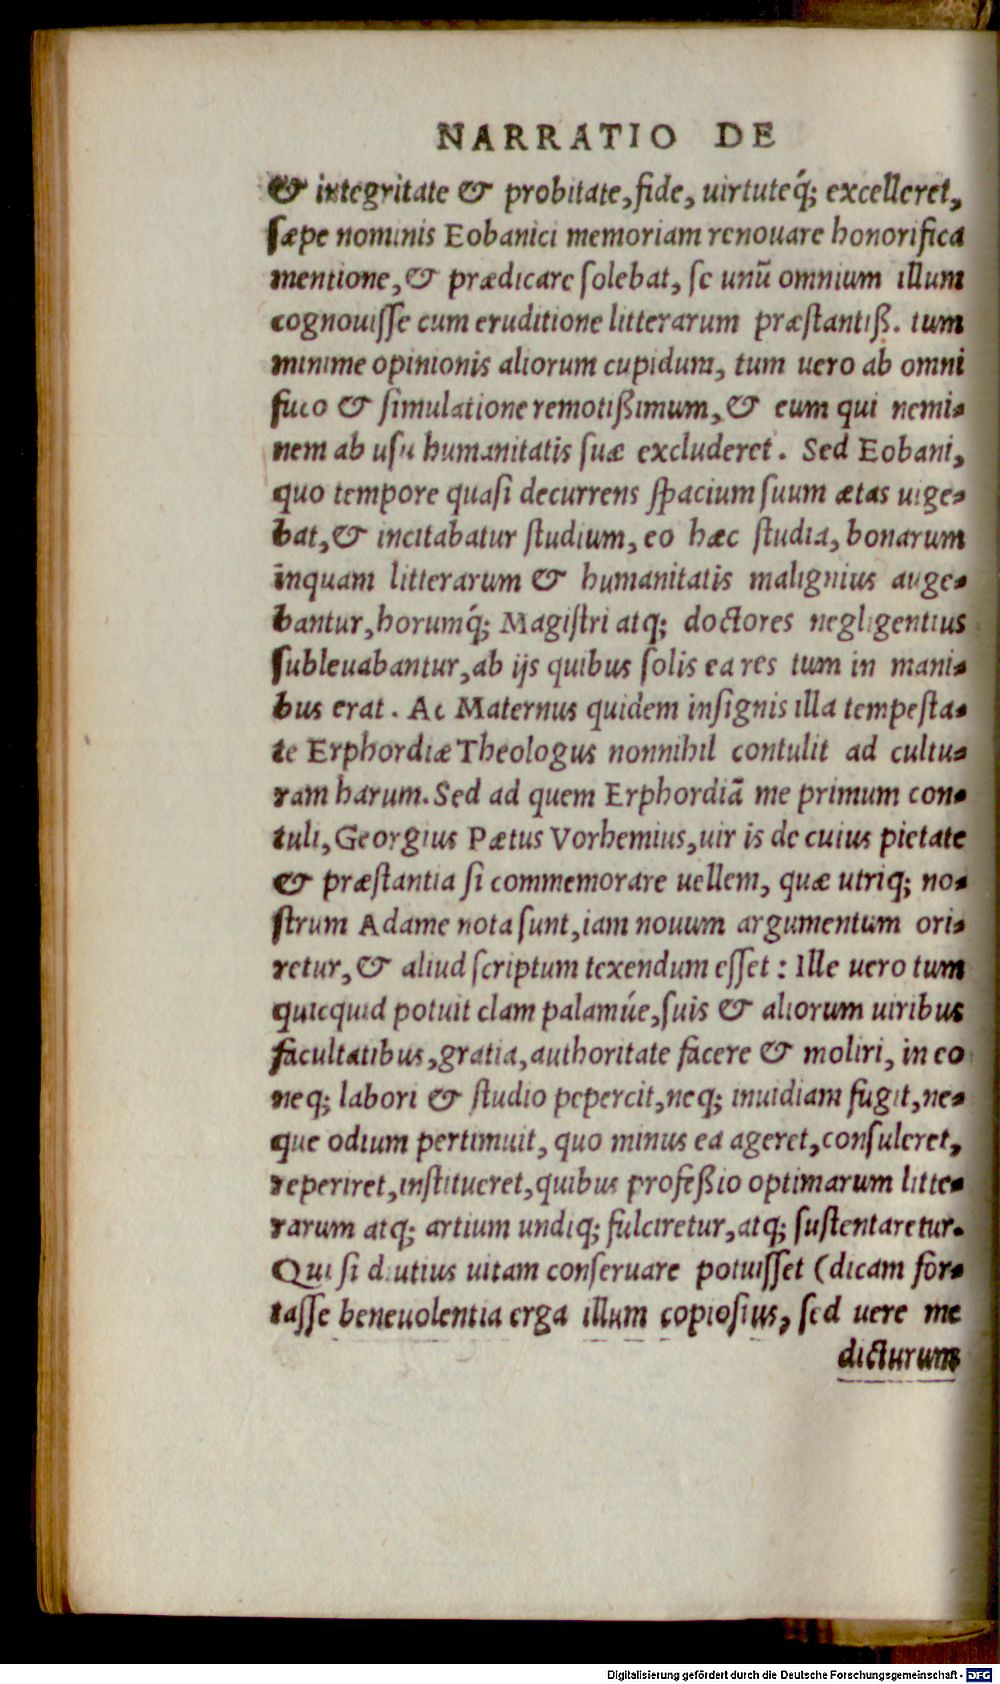 NARRATIO DE
& integritate & probitate, fide, uirtuteq́; excelleret,
sæpe nominis Eobanici memoriam renouare honorifica
mentione, & prædicare solebat, se unū omnium illum
cognouisse cum eruditione litterarum præstantiß. tum
minime opinionis aliorum cupidum, tum uero ab omni
fuco & simulatione remotißimum, & eum qui nemi-
nem ab usu humanitatis suæ excluderet. Sed Eobani,
quo tempore quasi decurrens spacium suum ætas uige-
bat, & incitabatur studium, eo hæc studia, bonarum
inquam litterarum & humanitatis malignius auge-
bantur, horumq́; Magistri atq; doctores negligentius
subleuabantur, ab ijs quibus solis ea res tum in mani-
bus erat. Ac Maternus quidem insignis illa tempesta-
te Erphordiæ Theologus nonnihil contulit ad cultu-
ram harum. Sed ad quem Erphordiā me primum con-
tuli, Georgius Pætus Vorhemius, uir is de cuius pietate
& præstantia si commemorare uellem, quæ utriq; no-
strum Adame nota sunt, iam nouum argumentum ori-
retur, & aliud scriptum texendum esset: Ille uero tum
quicquid potuit clam palamúe, suis & aliorum uiribus
facultatibus, gratia, authoritate facere & moliri, in eo
neq; labori & studio pepercit, neq; inuidiam fugit, ne-
que odium pertimuit, quo minus ea ageret, consuleret,
reperiret, institueret, quibus profeßio optimarum litte-
rarum atq; artium undiq; fulciretur, atq; sustentaretur.
Qui si diutius uitam conseruare potuisset (dicam for-
tasse beneuolentia erga illum copiosius, sed uere me
dicturum
Digitalisierung gefördert durch die Deutsche Forschungsgemeinschaft - DFG